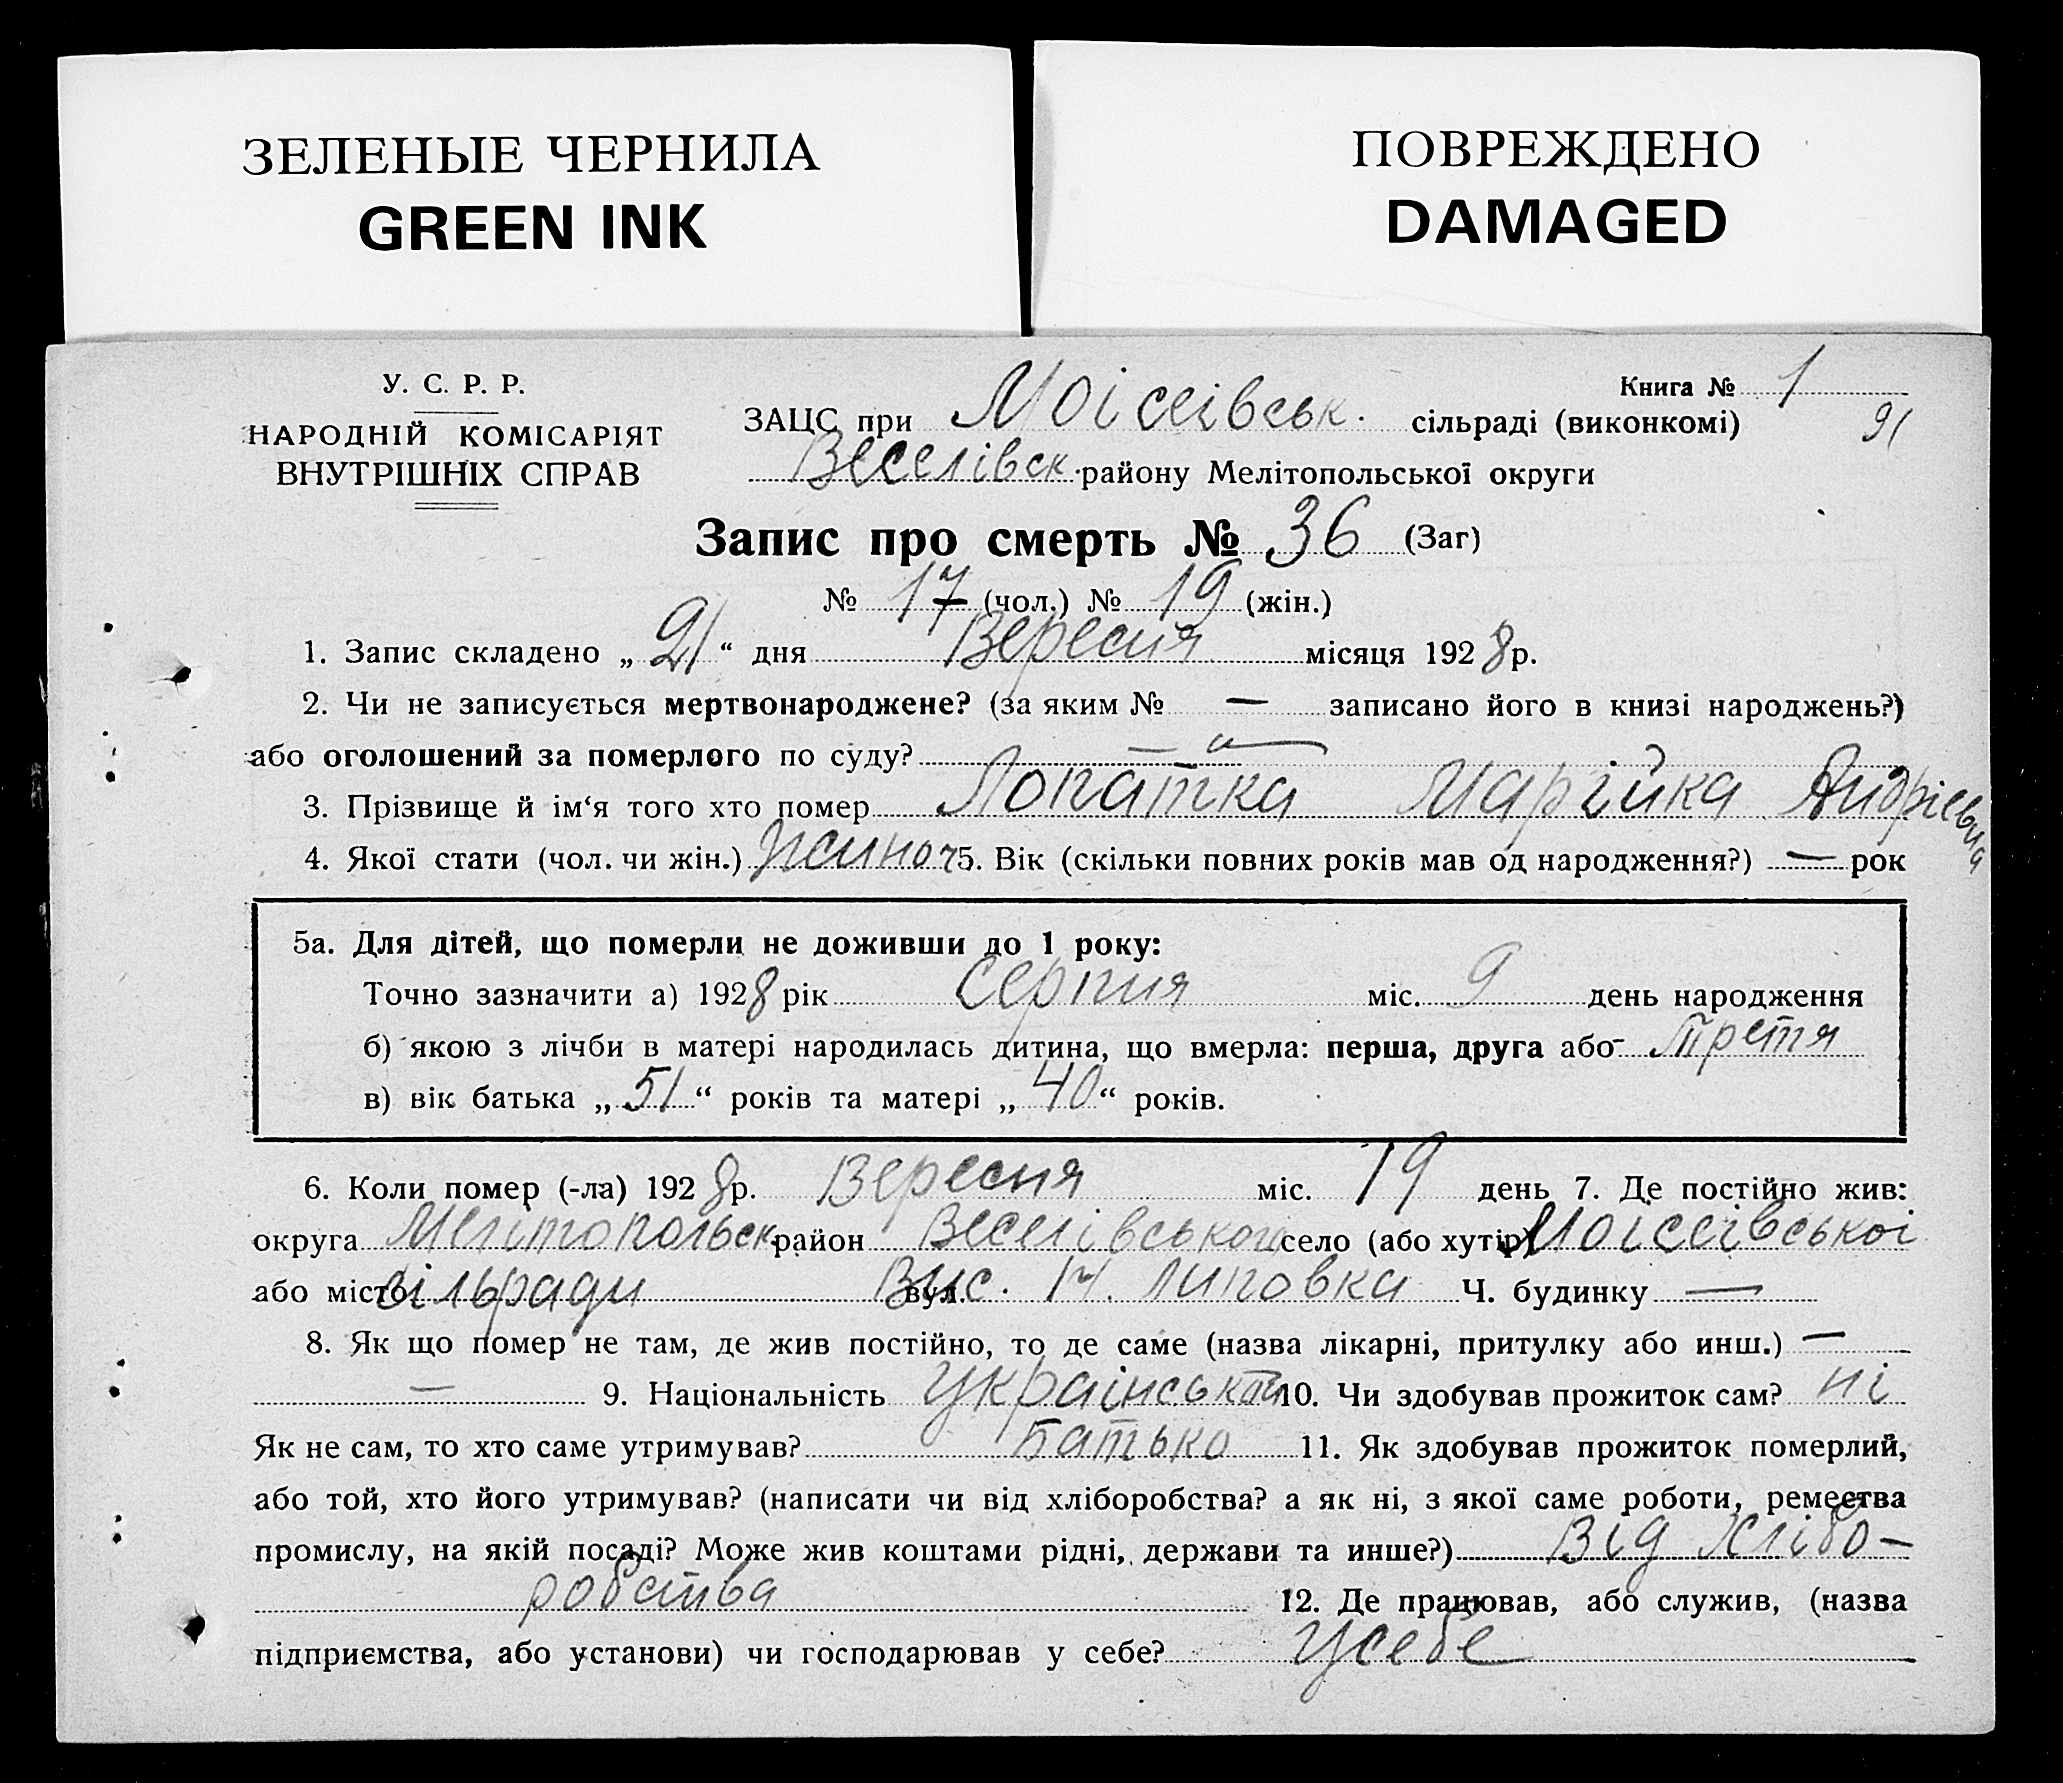 ЗЕЛЕНЫЕ ЧЕРНИЛА
GREEN INK
ПОВРЕЖДЕНО
DAMAGED
У. С. Р. Р.
НАРОДНІЙ КОМІСАРІЯТ
ВНУТРІШНІХ СПРАВ
Книга № 1
91
ЗАЦС при Моісеівськ. сільраді (виконкомі)
Веселівськ. району Мелітопольської округи
Запис про смерть № 36 (Заг)
№ 17 (чол.) № 19 (жін.)
1. Запис складено „21“ дня Вересня місяця 1928 р.
2. Чи не записується мертвонароджене? (за яким № — записано його в книзі народжень?)
або оголошений за померлого по суду? — „ —
3. Прізвище й ім‘я того хто помер Лопатка Марійка Андрієвна
4. Якої стати (чол. чи жін.) жіноч 5. Вік (скільки повних років мав од народження?) — рок
5а. Для дітей, що померли не доживши до 1 року:
Точно зазначити а) 1928 рік Серпня міс. 9 день народження
б) якою з лічби в матері народилась дитина, що вмерла: перша, друга або третя
в) вік батька „51“ років та матері „40“ років.
6. Коли помер (-ла) 1928 р. Вересня міс. 19 день 7. Де постійно жив:
округа Мелітопольськ район Веселівського село (або хутір) Моісеівськоі
або місто сільради вул. Вис. Липовка Ч. будинку —
8. Як що помер не там, де жив постійно, то де саме (назва лікарні, притулку або инш.) —
— 9. Національність Украінськой 10. Чи здобував прожиток сам? ні
Як не сам, то хто саме утримував? Батько 11. Як здобував прожиток померлий,
або той, хто його утримував? (написати чи від хліборобства? а як ні, з якої саме роботи, ремества
промислу, на якій посаді? Може жив коштами рідні, держави та инше?) Від хлібо-
робства 12. Де працював, або служив, (назва
підприємства, або установи) чи господарював у себе? Усебе